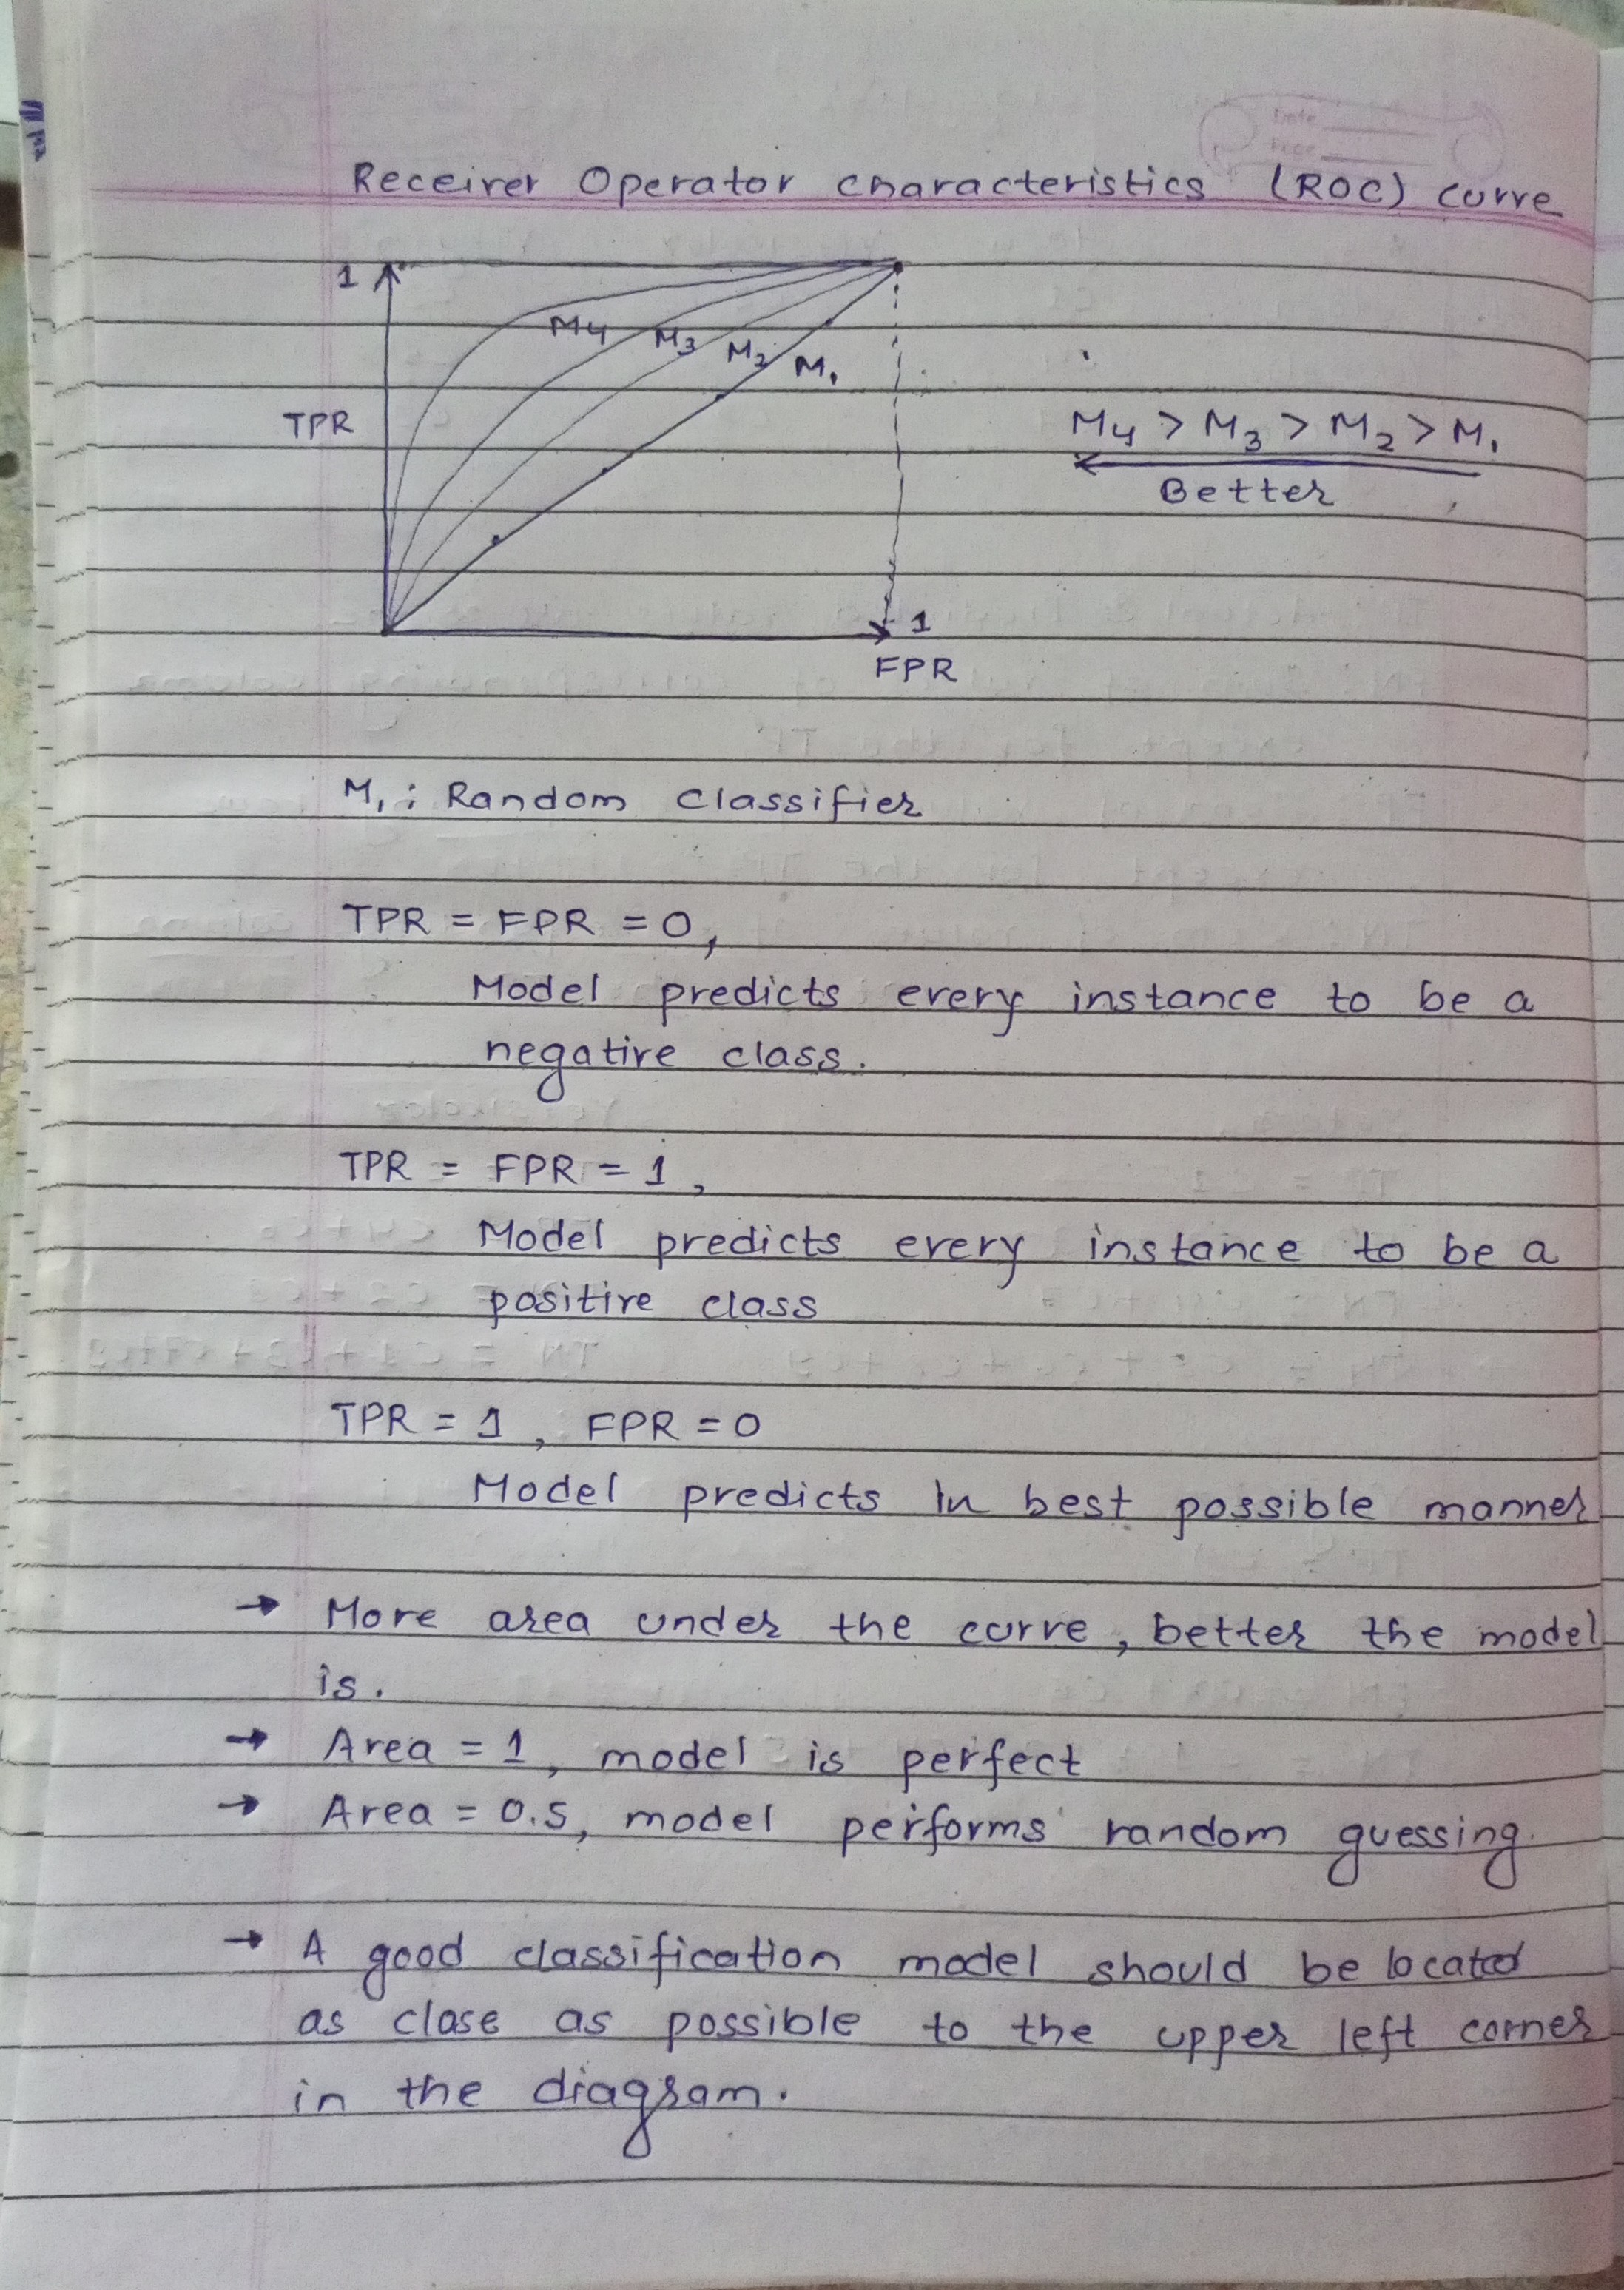 Receiver Operator characteristics (ROC) curve
1
M4 M3 M2 M1
TPR
M4 > M3 > M2 > M1
Better
1
FPR
M1 : Random classifier
TPR = FPR = 0,
Model predicts every instance to be a
negative class.
TPR = FPR = 1,
Model predicts every instance to be a
positive class
TPR = 1, FPR = 0
Model predicts in best possible manner
→ More area under the curve, better the model
is.
→ Area = 1, model is perfect
→ Area = 0.5, model performs random guessing.
→ A good classification model should be located
as close as possible to the upper left corner
in the diagram.